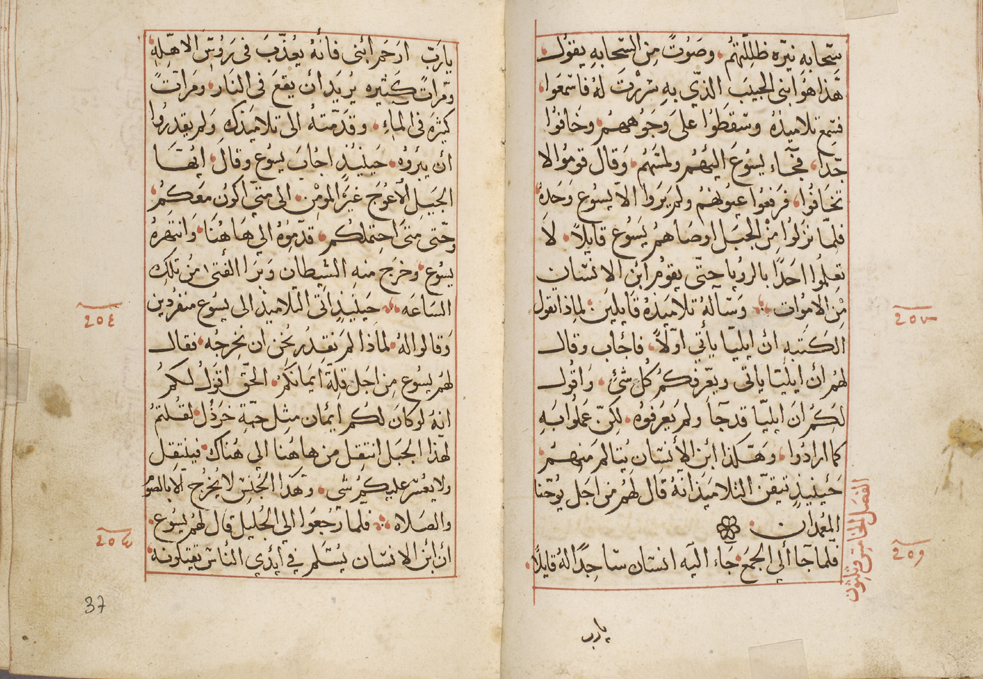 سحابه نيره ظللتهم وصوت من السحابه يقول
هذا هو ابني الحبيب الذي به سررت له فاسمعوا
فسمع تلاميذه وسقطوا على وجوههم وخافوا
جدا فجاء يسوع اليهم ولمسهم وقال قوموا لا
تخافوا فرفعوا عيونهم ولم يروا الا يسوع وحده
فلما نزلوا من الجبل اوصاهم يسوع قايلا لا
تعلموا احدا بالرويا حتى يقوم ابن الانسان
من الاموات وساله تلاميذه قايلين لماذا تقول
٢٥٧
الكتبه ان ايليا ياتي اولا فاجاب وقال
لهم ان ايليا ياتي ويعرفكم كل شئ واقول
لكم ان ايليا قد جا ولم يعرفوه لكن عملوا به
كما ارادوا وهكذا ابن الانسان يتالم منهم
حينيذ تيقن التلاميذ انه قال لهم من اجل يوحنا
المعمدان
فلما جا الى الجمع جاء اليه انسان ساجدا له قايلا
الفصل الخامس وثلثون
يارب
يارب ارحم ابني فانه يعذب في روس الاهله
ومرات كثيره يريد ان يقع في النار ومرات
كثيره في الماء وقدمته الى تلاميذك ولم يقدروا
ان يبروه حينيذ اجاب يسوع وقال ايها
الجيل الاعوج غير المومن الى متى اكون معكم
وحتى متى احتملكم قدموه الي هاهنا وانتهره
يسوع وخرج منه الشيطان وبرا الفتى من تلك
الساعه حينيذ اتى التلاميذ الى يسوع منفردين
وقالوا له لماذا لم نقدر نحن ان نخرجه فقال
لهم يسوع من اجل قلة ايمانكم الحق اقول لكم
انه لو كان لكم ايمان مثل حبة خردل لقلتم
لهذا الجبل انتقل من هاهنا الى هناك فينتقل
ولا يعسر عليكم شي وهذا الجنس لا يخرج الا بالصوم
والصلاه فلما رجعوا الى الجليل قال لهم يسوع
ان ابن الانسان يسلم في ايدي الناس يقتلونه
37